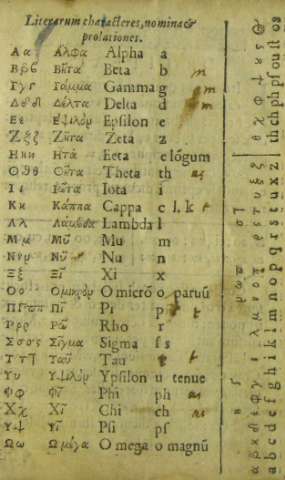 Literarum characteres, nomina &
prolationes.
Α α Ἄλφα Alpha a
Β β ϐ Βῆτα Beta b
Γ γ Γάμμα Gamma g
Δ δ Δέλτα Delta d
Ε ε Ἐψιλὸν Epsilon e
Ζ ζ Ζῆτα Zeta z
Η η Ἦτα Eeta e lõgum
Θ ϑ θ Θῆτα Theta th
Ι ι Ἰῶτα Iota i
Κ κ Κάππα Cappa c l. k
Λ λ Λάμβδα Lambda l
Μ μ Μῦ Mu m
Ν ν Νῦ Nu n
Ξ ξ Ξῖ Xi x
Ο ο Ὀμικρὸν O micrõ o paruũ
Π π ϖ Πῖ Pi p
Ρ ρ Ῥῶ Rho r
Σ σ ς Σίγμα Sigma ſ s
Τ τ Ταῦ Tau t
Υ υ Ὑψιλὸν Ypsilon u tenue
Φ φ Φῖ Phi ph
Χ χ Χῖ Chi ch
Ψ ψ Ψῖ Psi pſ
Ω ω Ὠμέγα O mega o magnũ
a b c d e f g h i k l m n o p q r s t u x z